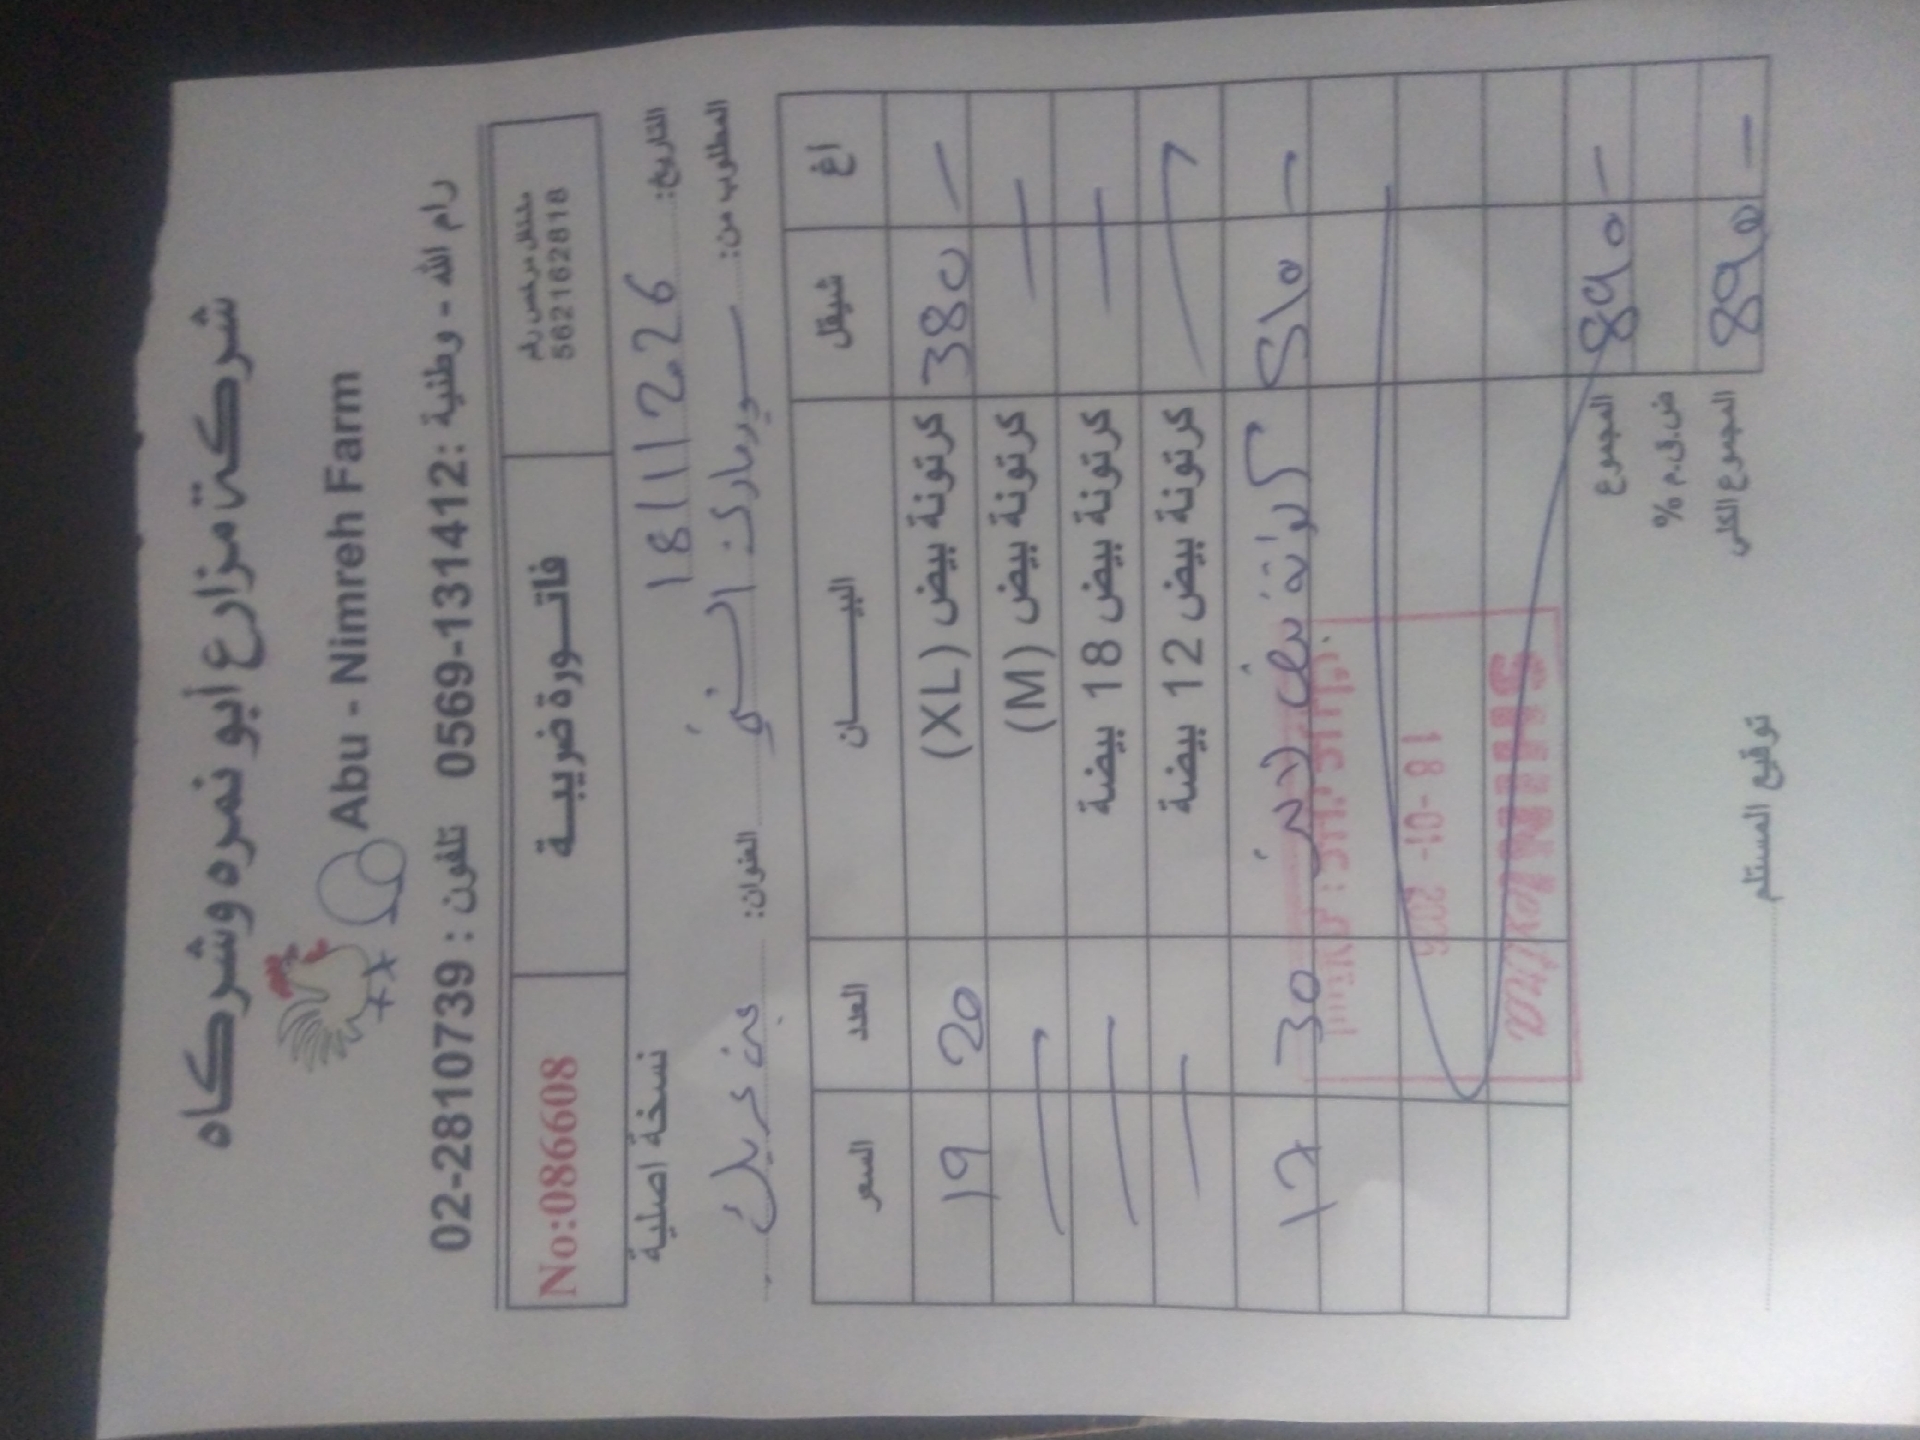 شركة مزارع أبو نمره وشركاه
Abu - Nimreh Farm
رام الله - وطنية : 0569-131412 تلفون : 02-2810739
مشتغل مرخص رقم
562162818
فاتـــورة ضريبـــة
No:086608
التاريخ: 18/1/2026
نسخة اصلية
المطلوب من: سوبرماركت
العنوان:
البيـــــــان شيقل أغ العدد السعر
كرتونة بيض (XL) 380 — 20 19
كرتونة بيض (M) — — —
كرتونة بيض 18 بيضة — — —
كرتونة بيض 12 بيضة — — —
كرتونة بيض 510 — 30 17
18 -01- 2026
المجموع 890 —
ض.ق.م %
المجموع الكلي 890 —
توقيع المستلم